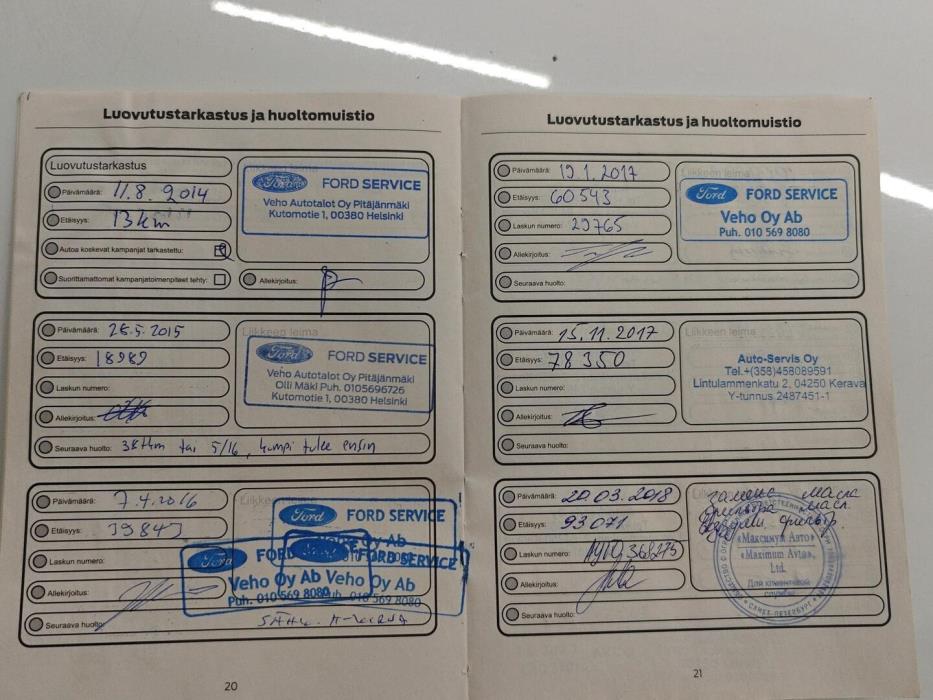 Luovutustarkastus ja huoltomuistio
Luovutustarkastus
Päivämäärä: 11.8.2014
Etäisyys: 13km
Autoa koskevat kampanjat tarkastettu:
Suorittamattomat kampanjatoimenpiteet tehty:
Ford FORD SERVICE
Veho Autotalot Oy Pitäjänmäki
Kutomotie 1, 00380 Helsinki
Allekirjoitus:
Päivämäärä: 26.5.2015
Etäisyys: 18989
Laskun numero:
Allekirjoitus:
Seuraava huolto: 38tkm tai 5/16, kumpi tulee ensin
Liikkeen leima
Ford FORD SERVICE
Veho Autotalot Oy Pitäjänmäki
Olli Mäki Puh. 0105696726
Kutomotie 1, 00380 Helsinki
Päivämäärä: 7.4.2016
Etäisyys: 39843
Laskun numero:
Allekirjoitus:
Seuraava huolto:
Liikkeen leima
Ford FORD SERVICE
Oy Ab
Ford FORD SERVICE
Veho Oy Ab Veho Oy Ab
Puh. 010 569 8080 569 8080
20
Luovutustarkastus ja huoltomuistio
Päivämäärä: 19.1.2017
Etäisyys: 60543
Laskun numero: 29765
Allekirjoitus:
Seuraava huolto:
Ford FORD SERVICE
Veho Oy Ab
Puh. 010 569 8080
Päivämäärä: 15.11.2017
Etäisyys: 78350
Laskun numero:
Allekirjoitus:
Seuraava huolto:
Liikkeen leima
Auto-Servis Oy
Tel.+(358)458089591
Lintulammenkatu 2, 04250 Kerava
Y-tunnus 2487451-1
Päivämäärä: 20.03.2018
Etäisyys: 93071
Laskun numero: 368275
Allekirjoitus:
Seuraava huolto:
замена масла
фильтра масл.
фильтр.
«Максимум Авто»
Ltd.
Для клиентской
службы
САНКТ-ПЕТЕРБУРГ
21